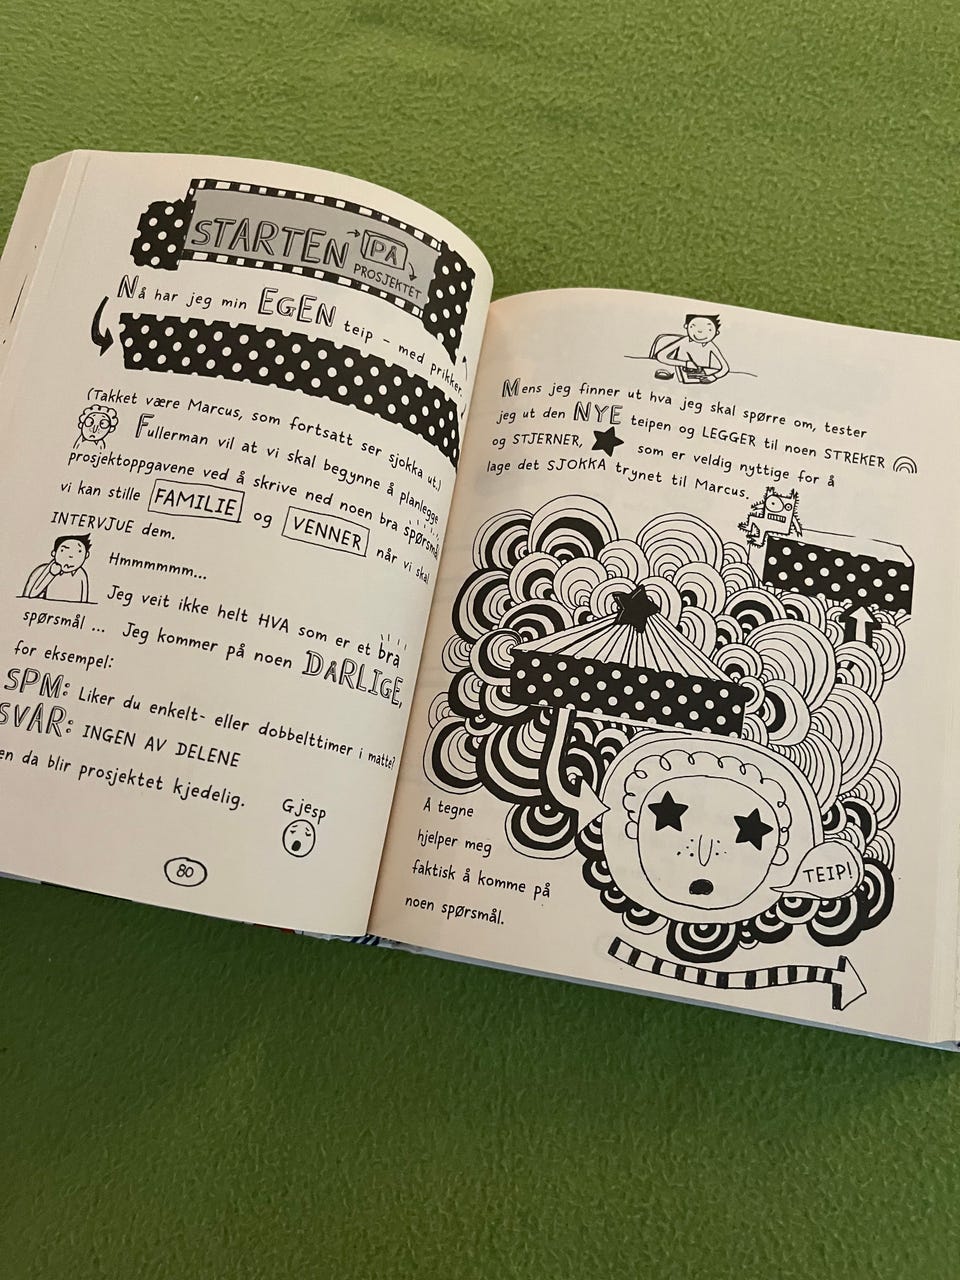 STARTEN PÅ
PROSJEKTET
Nå har jeg min EGEN teip – med prikker.
(Takket være Marcus, som fortsatt ser sjokka ut.)
Fullerman vil at vi skal begynne å planlegge
prosjektoppgavene ved å skrive ned noen bra spørsmål
vi kan stille FAMILIE og VENNER når vi skal
INTERVJUE dem.
Hmmmmmm...
Jeg veit ikke helt HVA som er et bra
spørsmål ... Jeg kommer på noen DÅRLIGE,
for eksempel:
SPM: Liker du enkelt- eller dobbelttimer i matte?
SVAR: INGEN AV DELENE
en da blir prosjektet kjedelig.
Gjesp
80
Mens jeg finner ut hva jeg skal spørre om, tester
jeg ut den NYE teipen og LEGGER til noen STREKER
og STJERNER, som er veldig nyttige for å
lage det SJOKKA trynet til Marcus.
Å tegne
hjelper meg
faktisk å komme på
noen spørsmål.
TEIP!